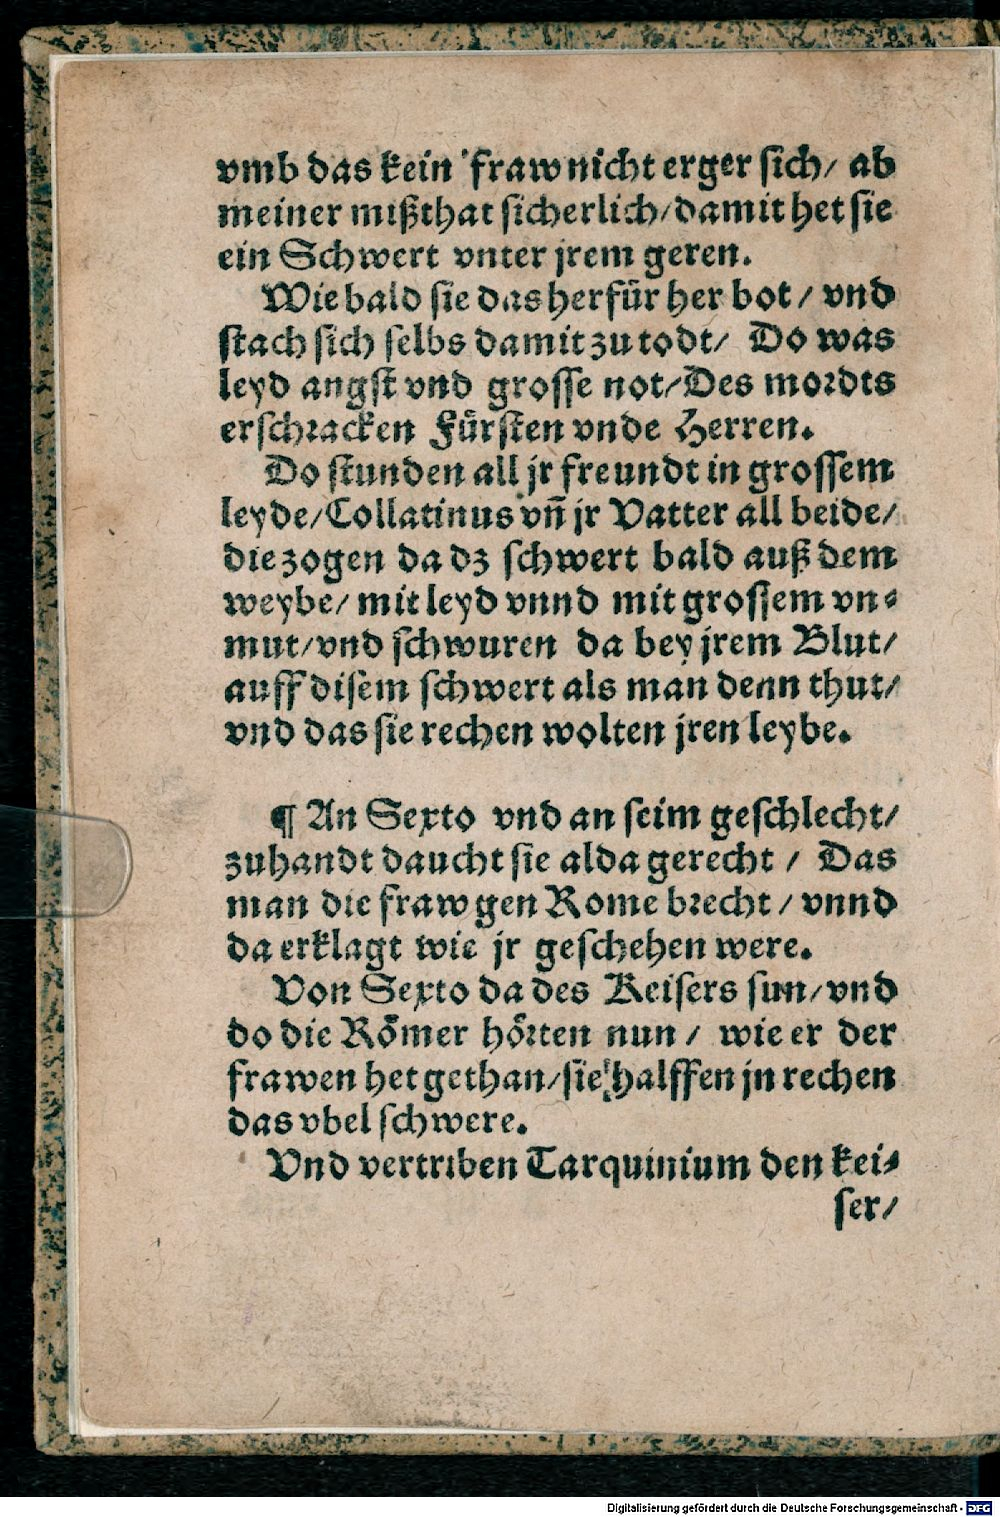 vmb das kein fraw nicht erger sich/ ab
meiner mißthat sicherlich/damit het sie
ein Schwert vnter jrem geren.
Wie bald sie das herfür her bot/ vnd
stach sich selbs damit zu todt/ Do was
leyd angst vnd grosse not/Des mordts
erschracken Fürsten vnde Herren.
Do stunden all jr freundt in grossem
leyde/Collatinus vñ jr Vatter all beide/
die zogen da dz schwert bald auß dem
weybe/ mit leyd vnnd mit grossem vn-
mut/vnd schwuren da bey jrem Blut/
auff disem schwert als man denn thut/
vnd das sie rechen wolten jren leybe.
¶ An Sexto vnd an seim geschlecht/
zuhandt daucht sie alda gerecht / Das
man die fraw gen Rome brecht / vnnd
da erklagt wie jr geschehen were.
Von Sexto da des Keisers sun/vnd
do die Römer hörten nun / wie er der
frawen het gethan/sie halffen jn rechen
das vbel schwere.
Vnd vertriben Tarquinium den kei-
ser/
Digitalisierung gefördert durch die Deutsche Forschungsgemeinschaft - DFG